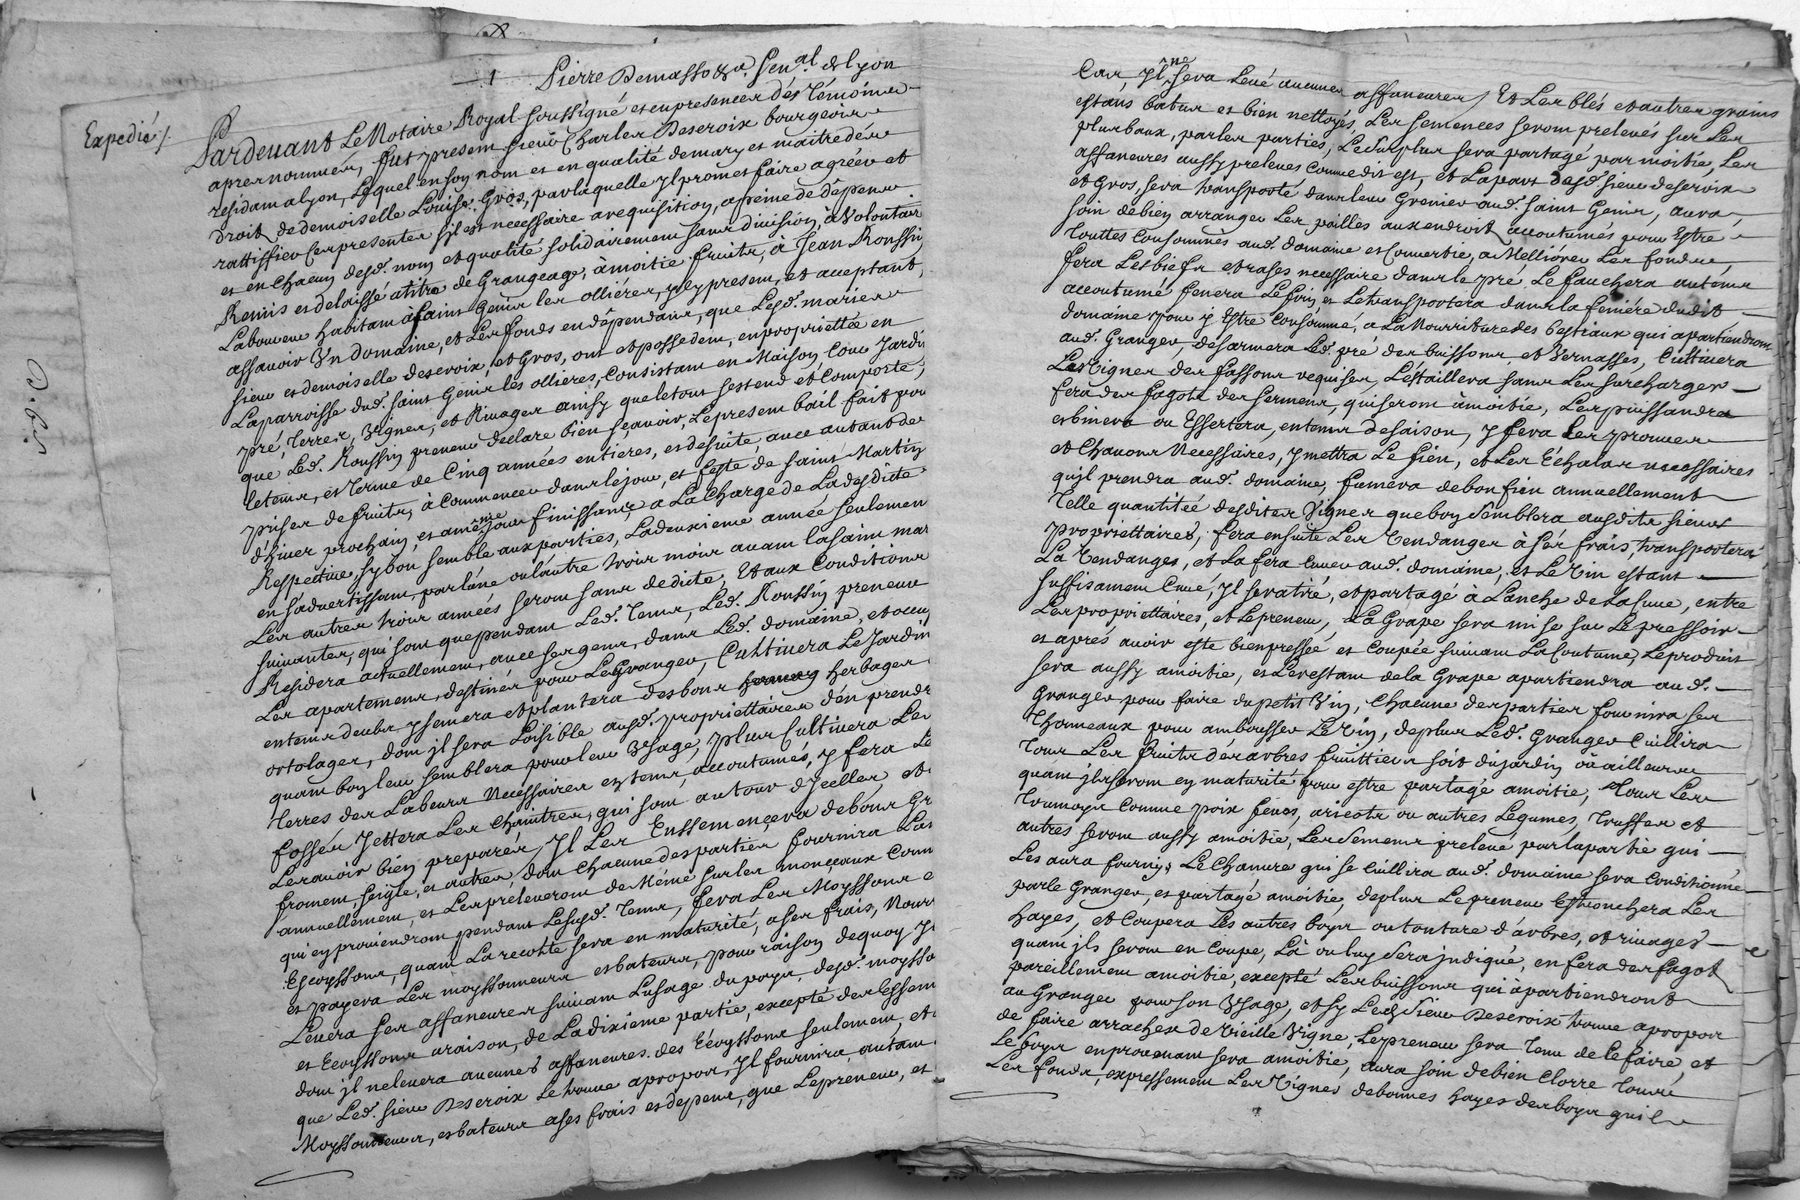 Expedié /.
Pardevant Le Notaire Royal soussigné et en presence des Témoins
apres nommés, fut present sieur Charles Deseroix bourgeois
residam a lyon, Lequel en son nom et en qualité de mary et maitre des
droits de demoiselle Louise Gros, par laquelle yl promet faire agréer et
rattiffier Ces presentes s'il est necessaire a requisition, a peine de dépens
et en Chacun desd. nom et qualité solidairement sans division, à volontair
Remis et delaissé a titre de Grangeage, à moitié fruits, à Jean Roussin
Laboureur habitam a saint Genis les ollières, yCy present, et acceptant,
assavoir Vn domaine, et Les fonds en dépendants, que Lesd. mariés
sieur et demoiselle deseroix, et Gros, ont et possedent, en propriettée en
La parroisse dud. saint Genis les ollieres, Consistant en Maison Cour Jardi
pré, Terres, Vignes, et Rivages ainsy que le tout s'estend et Comporte,
que Led. Roussin preneur declare bien sçavoir, Le present bail fait pour
le tems, et terme de Cinq années entieres, et de suite, avec autant de
prises de fruits, à Commencer dans le jour, et feste, de saint Martin
d'hiver prochain, et a meme jour finissant, a La Charge de La desdite
Respective, sy bon semble aux parties, La deuxieme année seulemen
en s'advertissam, par L'une ou l'autre trois mois avam la saint mar
Les autres trois années serom sans dedicte, Et aux Conditions
suivantes, qui som que pendant Led. Tems, Led. Roussin preneur
Residera actuellement, avec ses gens, dans Led. domaine, et occup
Les apartemens, destinés pour Le Granger, Cultivera Le Jardin
en tems deub, y semera et plantera des bons herbages
ortolages, dom jl sera Loisible ausd. propriettaires d'en prendr
quam bon leur semblera pour leur Vsage, plus Cultivera Les
Terres des Labeurs Necessaires es tems accoutumés, y fera Le
fossés Jettera Les Chaintres, qui som autour d'ycelles et
Les avoir bien preparés, Yl Les Enssemençera de bons Gr
froment, seigle, et autres, dom Chacune des parties fournira La
annuellement, et Les préleverom de Même sur les monçeaux Comm
qui en proviendrom pendant Lesusd. Tems, fera Les Moyssons e
Ecoyssons, quam La recolte sera en maturité, a ses frais, Nourr
et payera Les moyssonneurs et bateurs, pour raison de quoy Jl
Levera Ses affaneures suivam Lusage du pays, desd. moysso
et Ecoyssons a raison, de La dixieme partie, excepté des Essem
dom jl ne levera aucunes affaneures des Ecoyssons seulement, et
que Led. sieur Deseroix Le trouve a propos, Yl fournira autam
Moyssonneurs, et bateurs a ses frais et depens, que Le preneur, et
Car, yl ne sera Levé aucunes affaneures / Et Les blés et autres grains
estans batus et bien nettoyés, Les semences serom prelevés sur Les
plus baux, par les parties, Le surplus sera partagé par moitié, Les
affaneures aussy prelevés Comme dit est, et La part desd. sieur deseroix
et Gros, sera transporté dans leur Grenier aud. saint Genis, aura
soin de bien arranger Les pailles aux endroits accoutumés pour Estre
touttes Consommés aud. domaine et Converties, a Mellióres Les fonds
fera Les biefs et rases necessaire dans le pré, Le fauchera au tems
accoutumé fenera Le foin et Le transportera dans la feniére dudit
domaine pour y Estre Consommé, a La Nourriture des bestiaux qui apartiendrom
aud. Granger, desarmera Led. pré des buissons, et Vernasses, Cultivera
Les Vignes des fassons requises, Les taillera sans Les surcharger
fera des fagots des sermens, qui serom à moitié, Les puissandra
et binera ou Essertera, en tems de saison, y fera Les prouves
et Chavons Necessaires, y mettra Le fien, et Les Échalas necessaires
qu'jl prendra aud. domaine, fumera de bon fien annuellement
Telle quantitée desdites Vignes que bon Semblera ausdits sieurs
Propriettaires, fera ensuite Les Vendanges à ses frais, transportera
La Vendanges, et La fera Cuver aud. domaine, et Le Vin estant
suffisament Cuvé, Jl sera tiré, et partagé a Lanche de La Cuve, entre
Les propriettaires, et Le preneur, La Grape sera mise sur Le pressoir
et aprés avoir esté bien pressée et Coupée suivam La Coutume, Le produit
sera aussy a moitié, et Le restam de la Grape apartiendra aud.
Granger pour faire du petit Vin, Chacune des parties fournira ses
Thonneaux pour ambousser Le Vin, de plus Led. Granger Cuillira
Tous Les fruits des arbres fruittiers soit du jardin où ailleurs
quam jls serom en maturité pour estre partagé a moitié, Tous Les
Tramoys Comme poix feves, aricots ou autres Legumes, Truffes et
autres serom aussy a moitié, Les Semens prelevé par la partie qui
Les aura fournis, Le Chanvre qui se Cuillira aud. domaine sera Conditionné
par le Granger, et partagé a moitié, de plus Le preneur Estronchera Les
hayes, et Coupera Les autres boys ou tonture d'arbres, et rivages
quam jls serom en Coupe, Là ou luy Sera jndiqué, en fera des fagots
pareillement a moitié, excepté Les buissons qui apartiendront
au Granger pour son Vsage, et sy Led. Sieur Deseroix trouve apropos
de faire arracher de Vieille Vigne, Le preneur sera Tenu de Le faire, et
Le boys en provenam sera a moitié, aura soin de bien Clorre Tous
Les fonds, expressement Les Vignes de bonnes hayes des boys qu'il